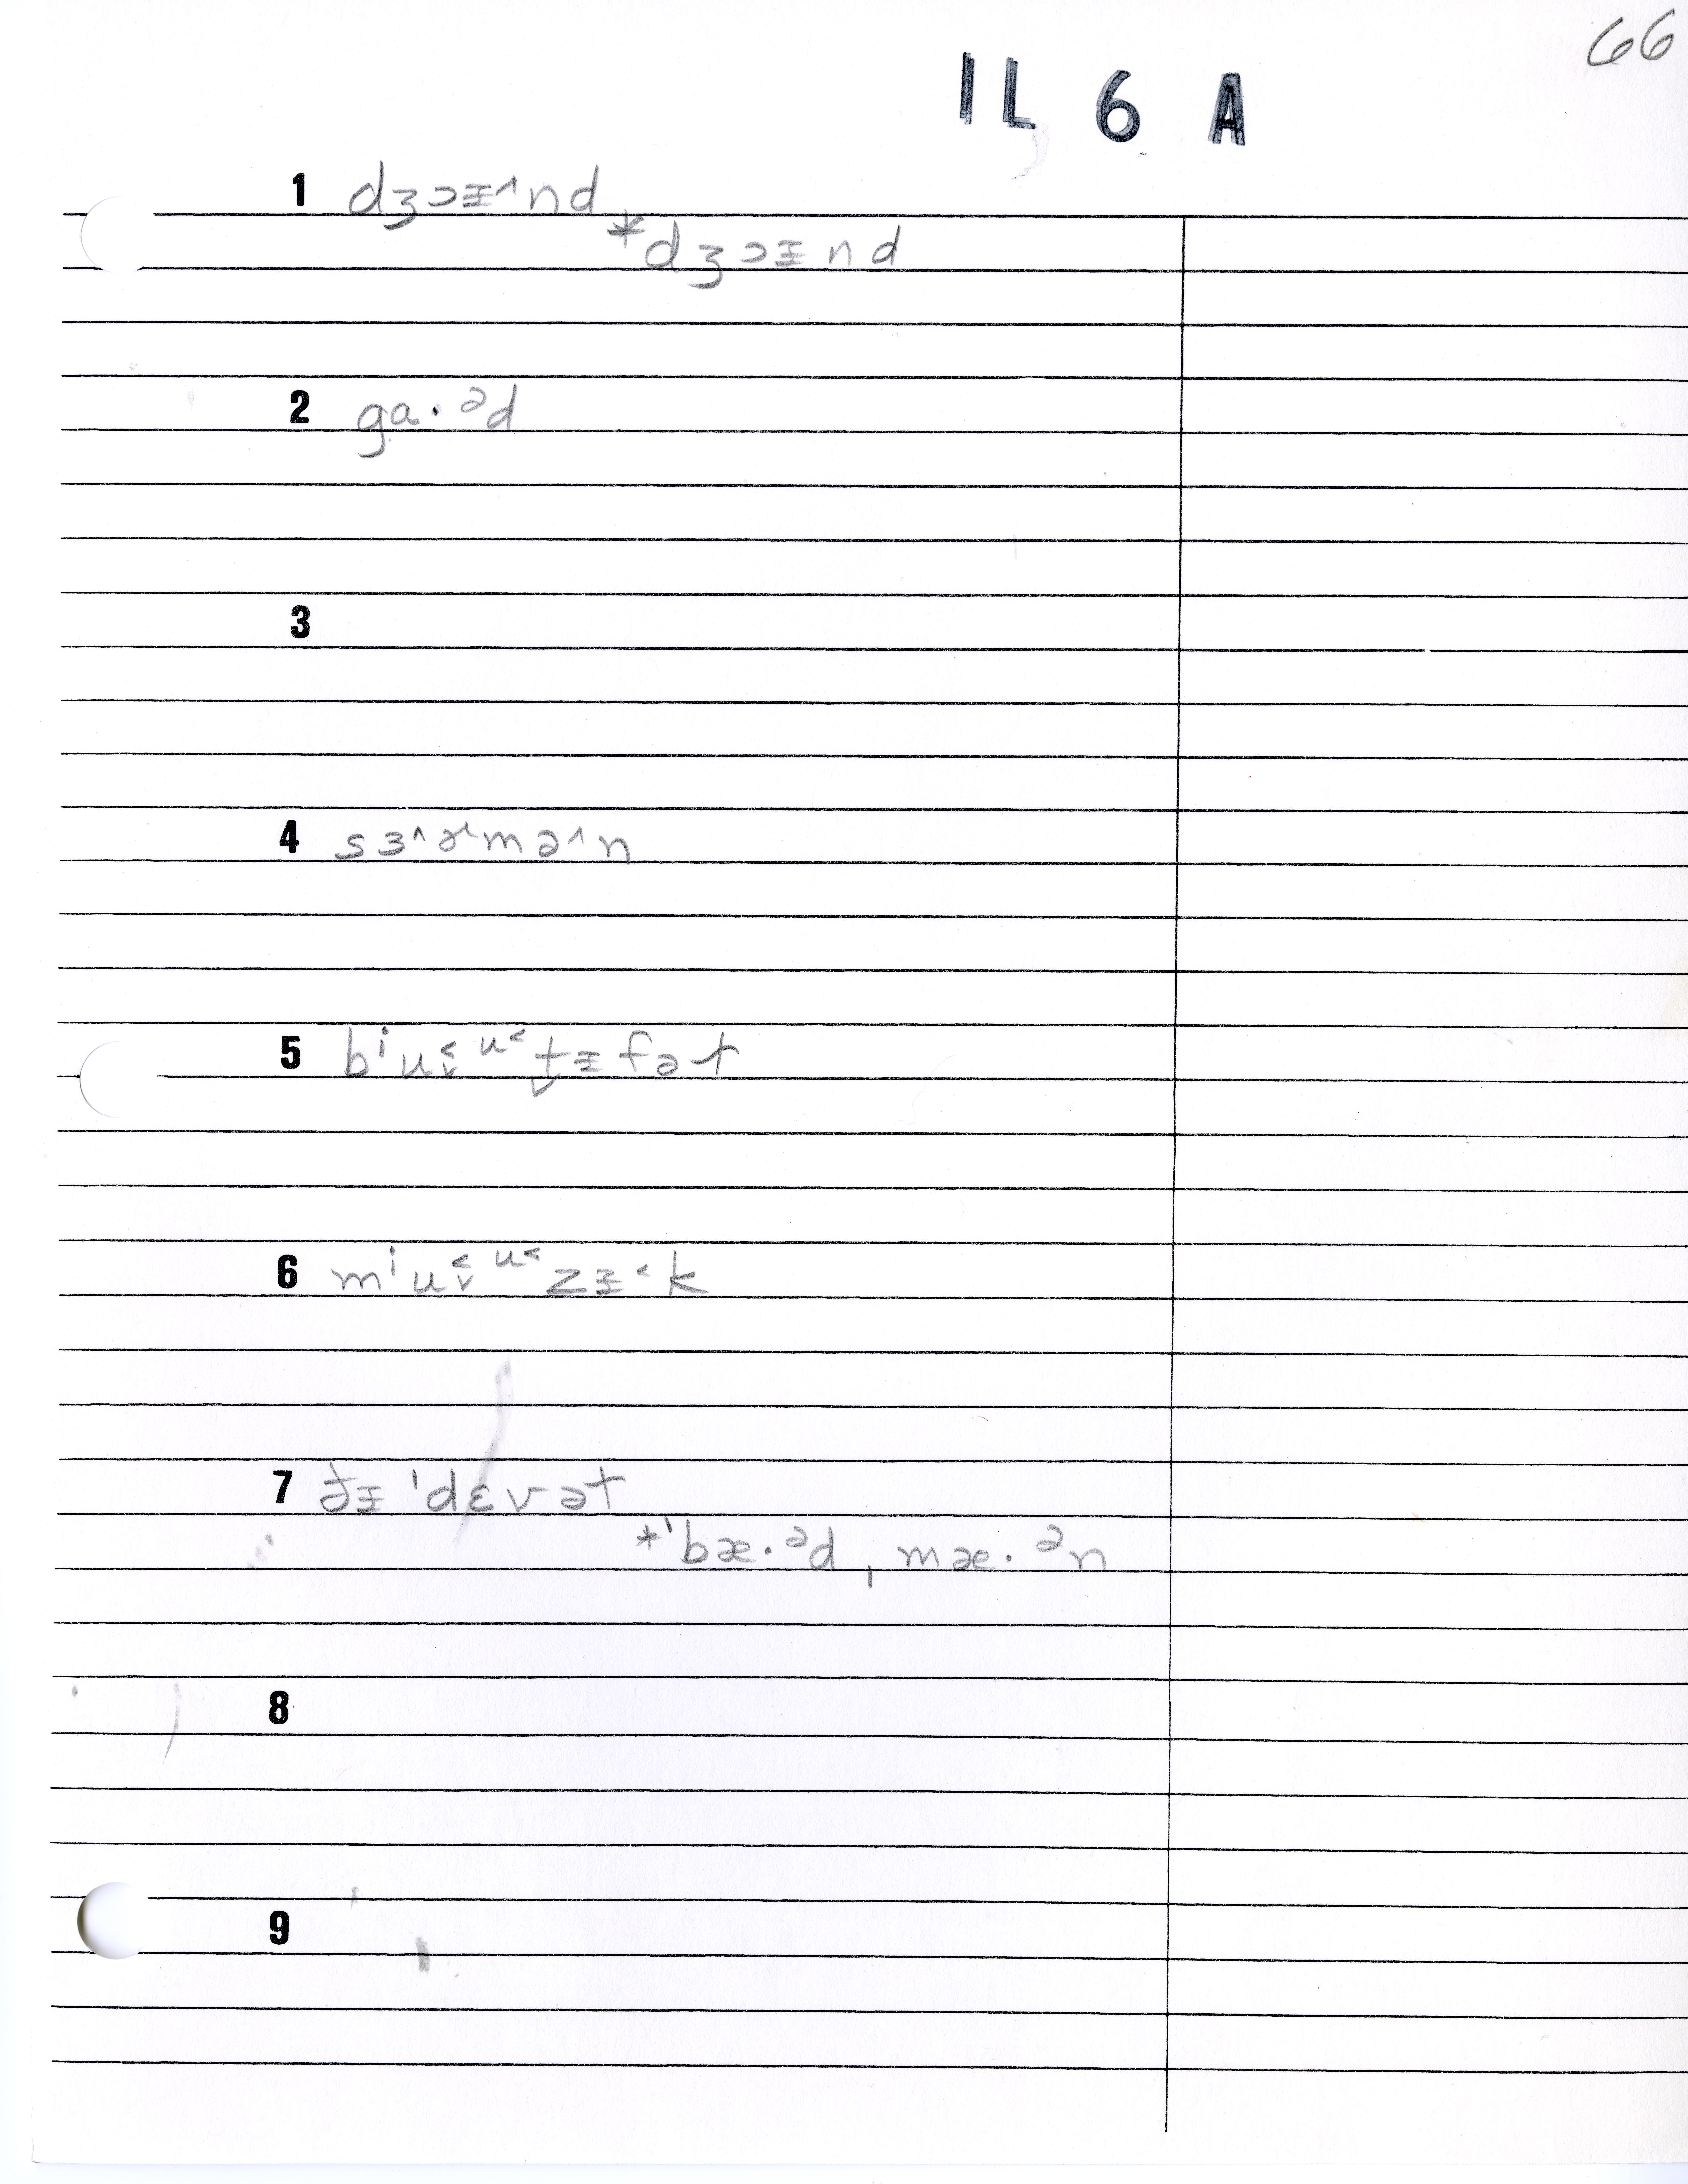 66
IL 6 A
1 dʒɔᵻ˄nd
*dʒɔᵻnd
2 ga·ᵊd
3
4 sɜ˄ɚmə˄n
5 bⁱu˂˅ᵘ˂t̬ᵻfət
6 mⁱu˂˅ᵘ˂zᵻ˂k
7 ðᵻ ˈdɛvət
*ˈbæ·ᵊd ˌmæ·ᵊn
8
9